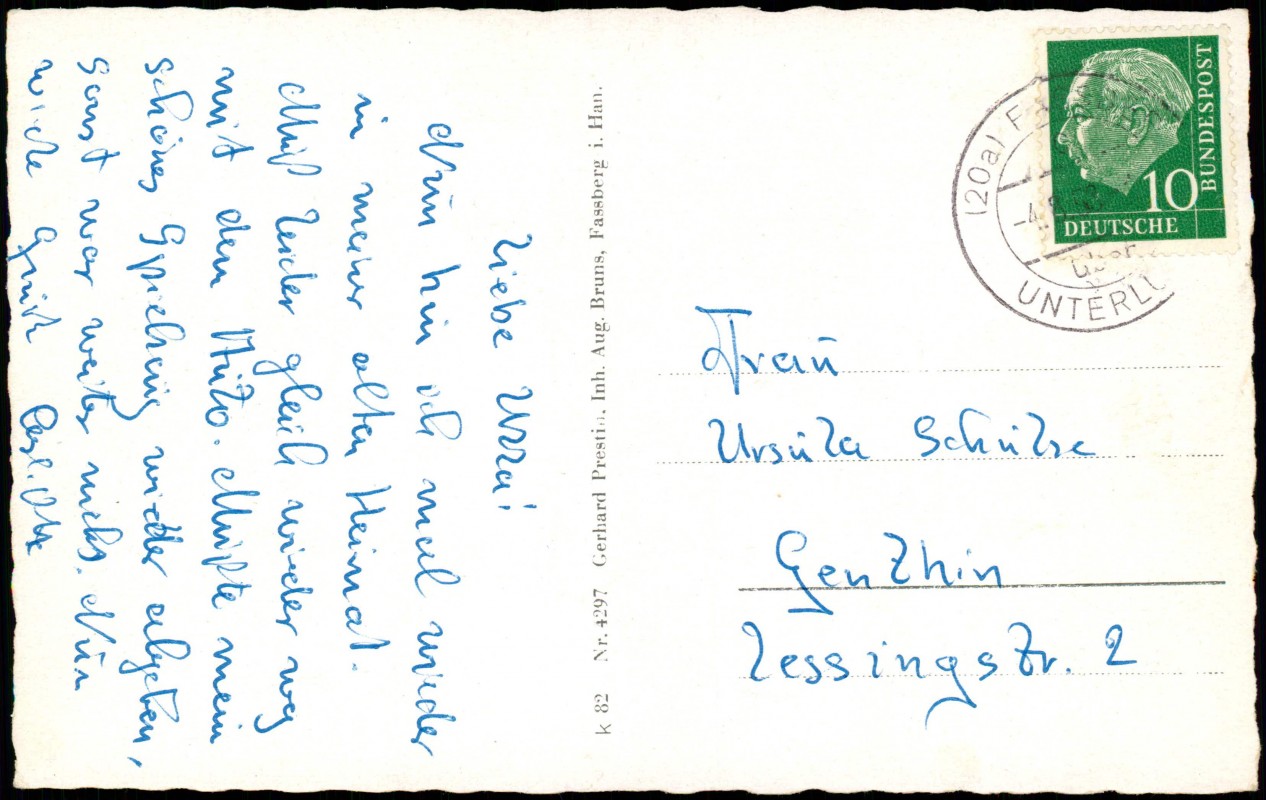 Liebe Ursa!
Nun bin ich mal wieder
in meiner alten Heimat.
Muß leider gleich wieder weg
mit dem Auto. Mußte mein
schönes wieder abgeben,
sonst war weiter nichts. Nun
viele
k 82 Nr. 4297 Gerhard Prestin, Inh. Aug. Bruns, Fassberg i. Han.
BUNDESPOST
10
DEUTSCHE
(20a)
-4.5.
über
UNTERLÜ
Frau
Ursula Schulze
Genthin
Lessingstr. 2